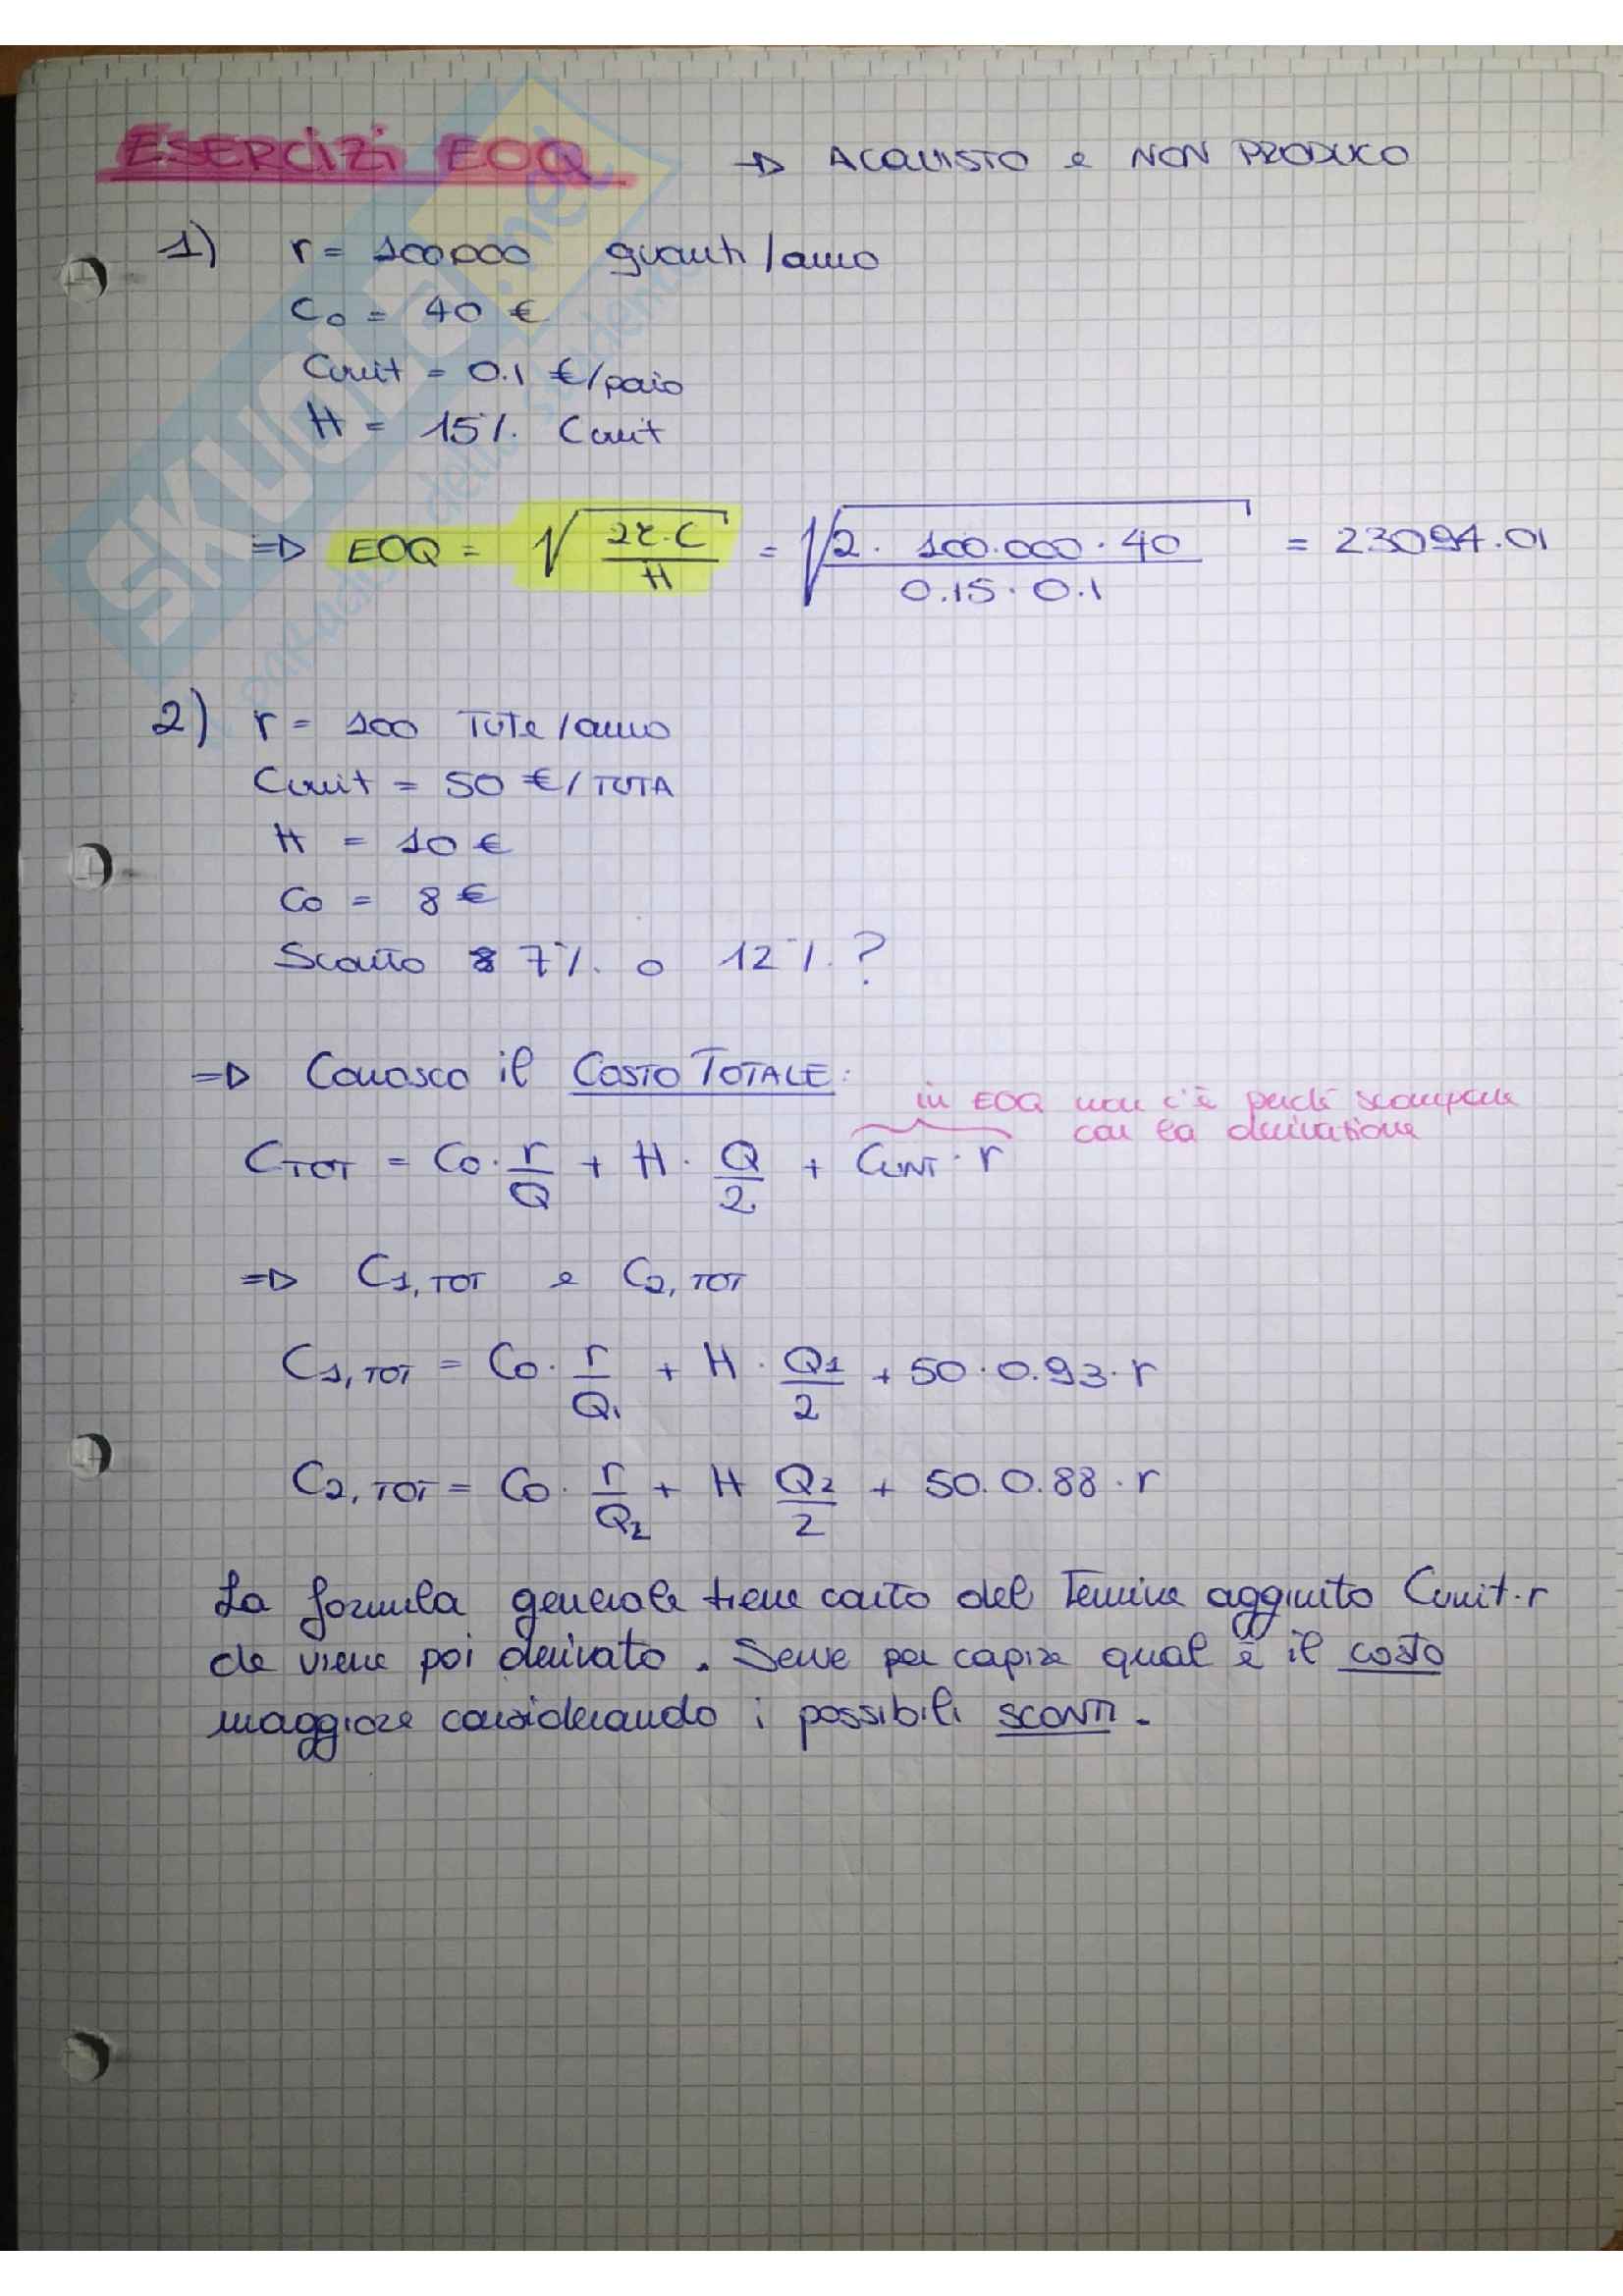 ESERCIZI EOQ → ACQUISTO e NON PRODUCO
1) r = 100.000 guanti/anno
Co = 40 €
Cunit = 0.1 €/paio
H = 15% Cunit
⇒ EOQ = √(2r·C / H) = √(2 · 100.000 · 40 / 0.15 · 0.1) = 23094.01
2) r = 100 Tute/anno
Cunit = 50 €/TUTA
H = 10 €
Co = 8 €
Sconto 7% o 12%?
⇒ Conosco il COSTO TOTALE:
in EOQ non c'è perché scompare
con la derivazione
CTOT = Co · r/Q + H · Q/2 + CUNIT · r
⇒ C1,TOT e C2,TOT
C1,TOT = Co · r/Q1 + H · Q1/2 + 50 · 0.93 · r
C2,TOT = Co · r/Q2 + H Q2/2 + 50 · 0.88 · r
La formula generale tiene conto del Termine aggiunto Cunit·r
che viene poi derivato. Serve per capire qual è il costo
maggiore considerando i possibili sconti.
SKUOLA.net